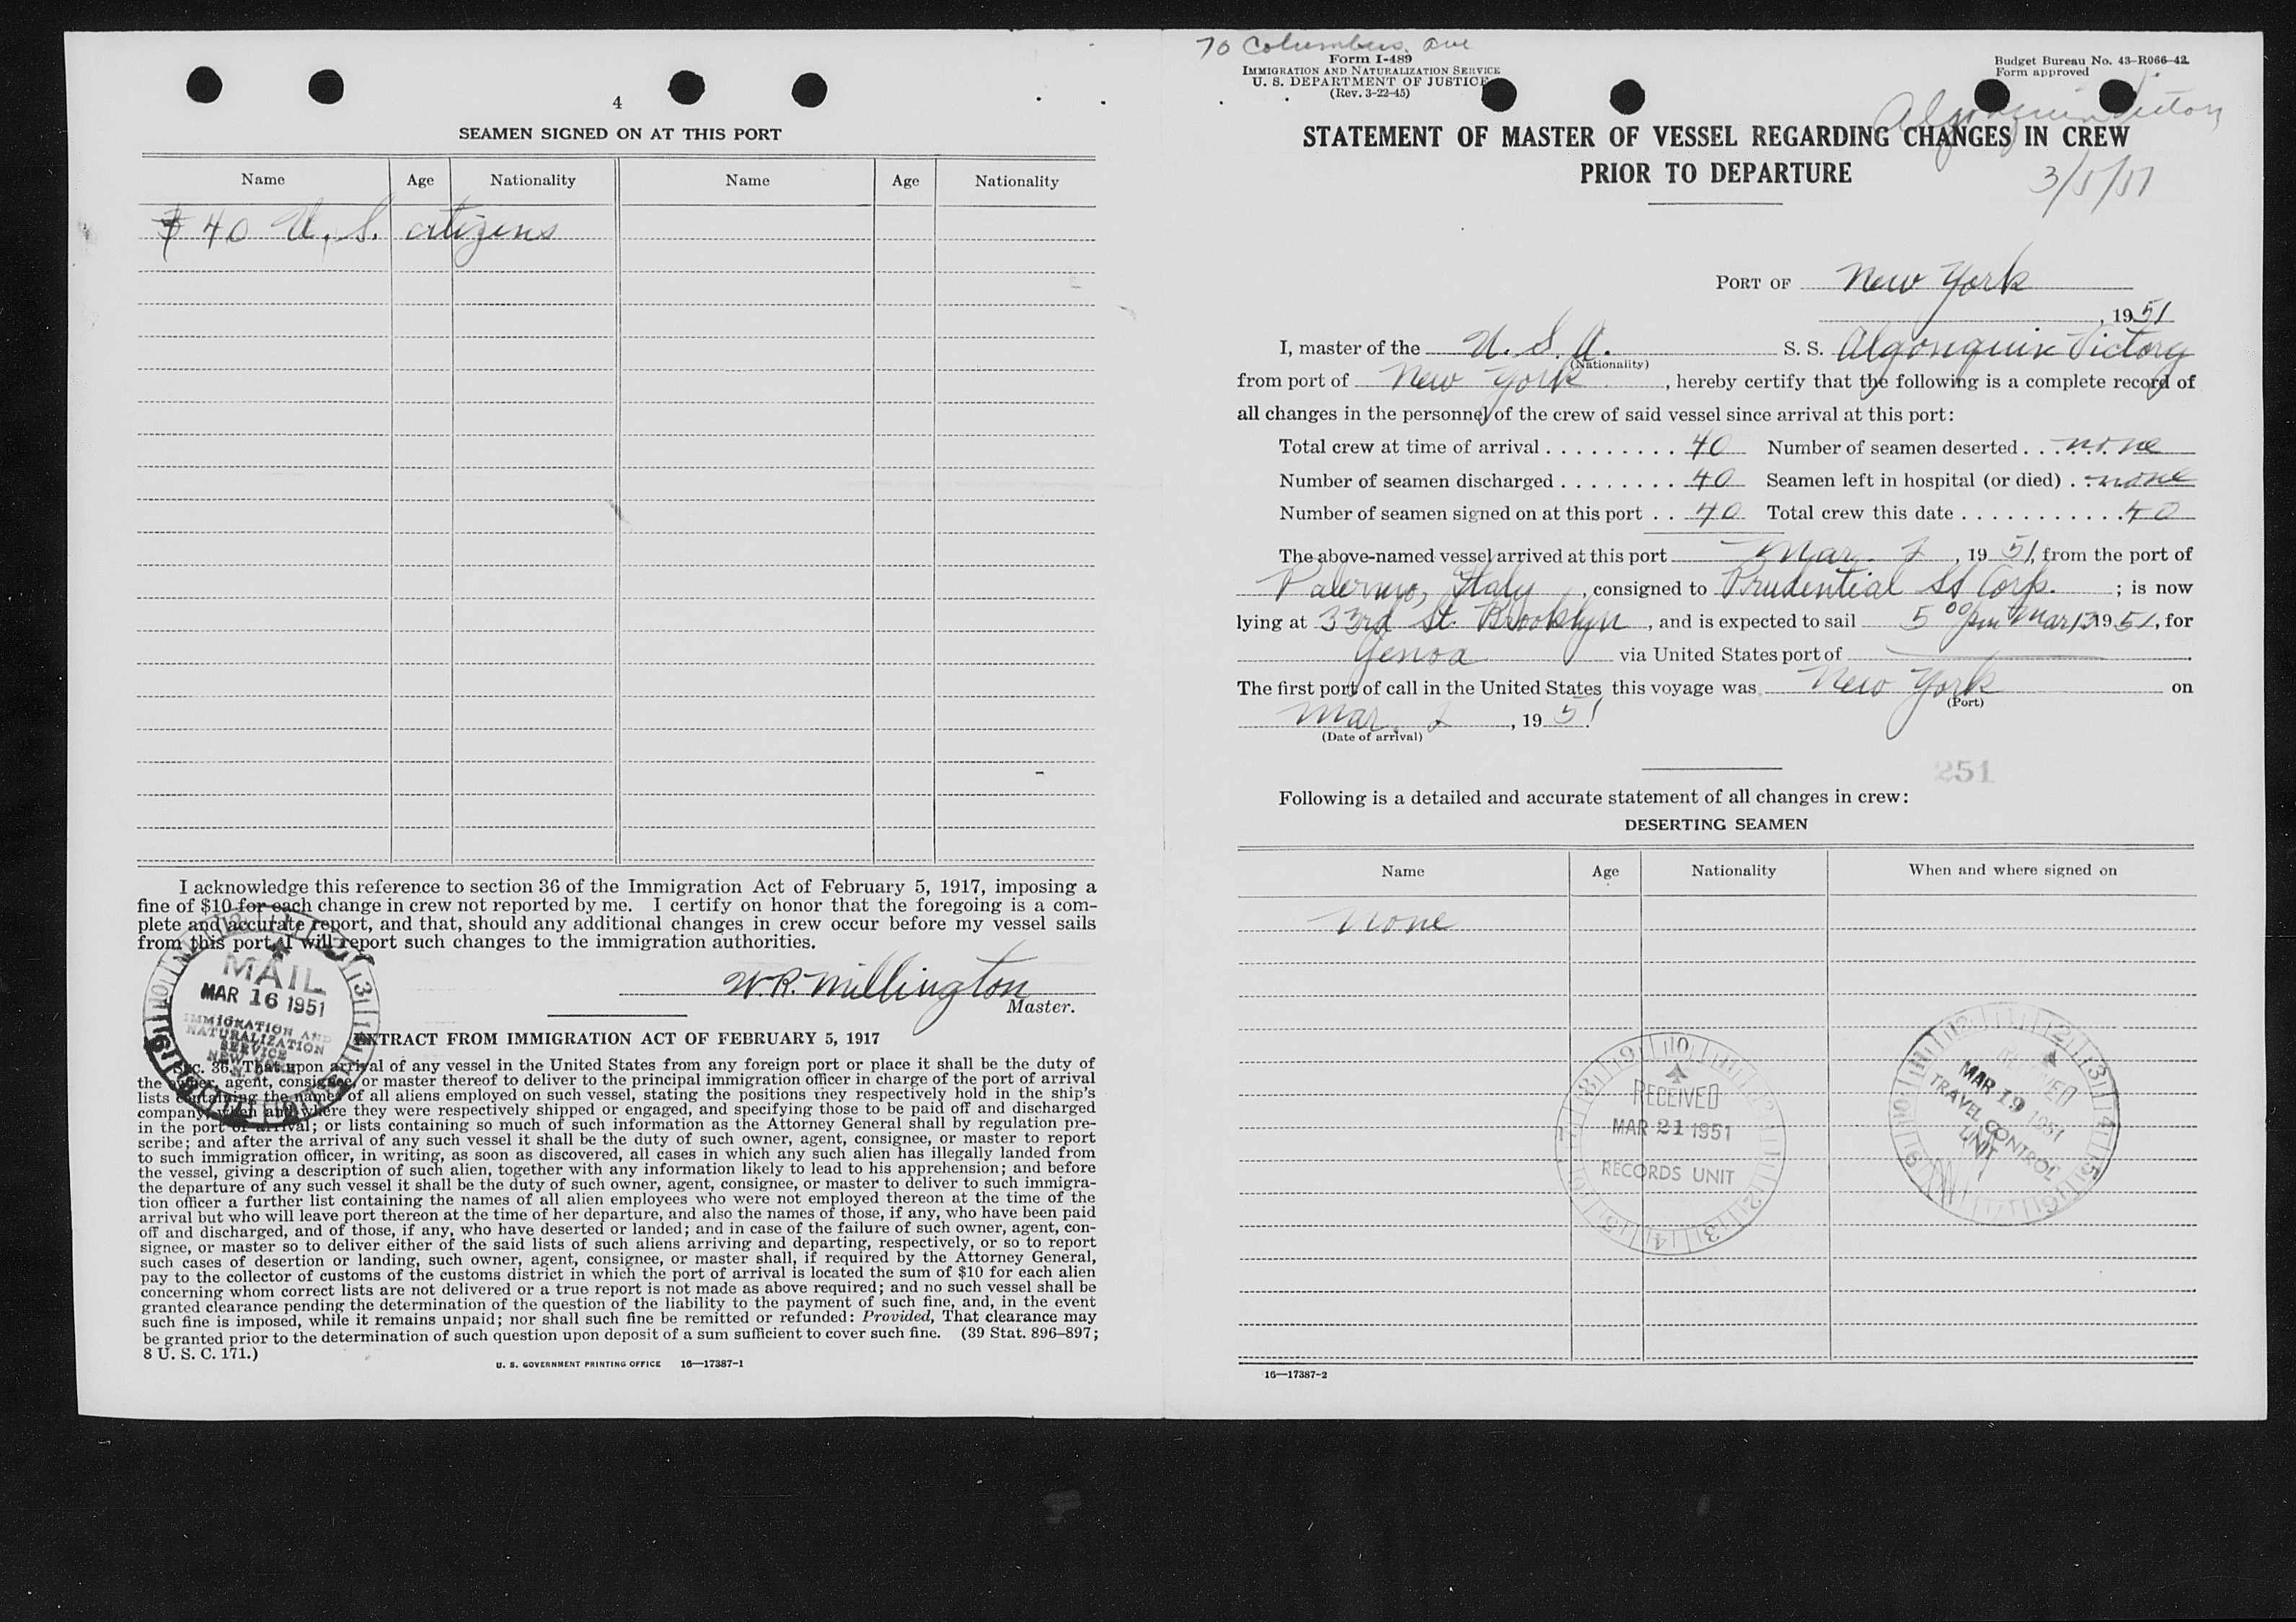 4
SEAMEN SIGNED ON AT THIS PORT
Name Age Nationality Name Age Nationality
40 U. S. citizens
I acknowledge this reference to section 36 of the Immigration Act of February 5, 1917, imposing a
fine of $10 for each change in crew not reported by me. I certify on honor that the foregoing is a com-
plete and accurate report, and that, should any additional changes in crew occur before my vessel sails
from this port, I will report such changes to the immigration authorities.
W. R. Millington
Master.
MAIL
MAR 16 1951
IMMIGRATION AND
NATURALIZATION
SERVICE
NEW YORK
EXTRACT FROM IMMIGRATION ACT OF FEBRUARY 5, 1917
Sec. 36. That upon arrival of any vessel in the United States from any foreign port or place it shall be the duty of
the owner, agent, consignee, or master thereof to deliver to the principal immigration officer in charge of the port of arrival
lists containing the names of all aliens employed on such vessel, stating the positions they respectively hold in the ship's
company, when and where they were respectively shipped or engaged, and specifying those to be paid off and discharged
in the port of arrival; or lists containing so much of such information as the Attorney General shall by regulation pre-
scribe; and after the arrival of any such vessel it shall be the duty of such owner, agent, consignee, or master to report
to such immigration officer, in writing, as soon as discovered, all cases in which any such alien has illegally landed from
the vessel, giving a description of such alien, together with any information likely to lead to his apprehension; and before
the departure of any such vessel it shall be the duty of such owner, agent, consignee, or master to deliver to such immigra-
tion officer a further list containing the names of all alien employees who were not employed thereon at the time of the
arrival but who will leave port thereon at the time of her departure, and also the names of those, if any, who have been paid
off and discharged, and of those, if any, who have deserted or landed; and in case of the failure of such owner, agent, con-
signee, or master so to deliver either of the said lists of such aliens arriving and departing, respectively, or so to report
such cases of desertion or landing, such owner, agent, consignee, or master shall, if required by the Attorney General,
pay to the collector of customs of the customs district in which the port of arrival is located the sum of $10 for each alien
concerning whom correct lists are not delivered or a true report is not made as above required; and no such vessel shall be
granted clearance pending the determination of the question of the liability to the payment of such fine, and, in the event
such fine is imposed, while it remains unpaid; nor shall such fine be remitted or refunded: Provided, That clearance may
be granted prior to the determination of such question upon deposit of a sum sufficient to cover such fine. (39 Stat. 896–897;
8 U. S. C. 171.)
U. S. GOVERNMENT PRINTING OFFICE 16—17387-1
70 Columbus Ave
Form I-489
IMMIGRATION AND NATURALIZATION SERVICE
U. S. DEPARTMENT OF JUSTICE
(Rev. 3-22-45)
Budget Bureau No. 43-R066-42
Form approved
Algonquin Victory
STATEMENT OF MASTER OF VESSEL REGARDING CHANGES IN CREW
PRIOR TO DEPARTURE
3/5/51
PORT OF New York
, 1951
I, master of the U. S. A. S. S. Algonquin Victory
(Nationality)
from port of New York , hereby certify that the following is a complete record of
all changes in the personnel of the crew of said vessel since arrival at this port:
Total crew at time of arrival . . . . . . . . . 40 Number of seamen deserted . . . none
Number of seamen discharged . . . . . . . . 40 Seamen left in hospital (or died) . . none
Number of seamen signed on at this port . . 40 Total crew this date . . . . . . . . . . . . 40
The above-named vessel arrived at this port Mar. 2 , 1951, from the port of
Palermo, Italy , consigned to Prudential SS Corp. ; is now
lying at 33rd St. Brooklyn , and is expected to sail 5 00 pm Mar 13 1951, for
Genoa via United States port of
The first port of call in the United States this voyage was New York on
(Port)
Mar. 2 , 1951.
(Date of arrival)
251
Following is a detailed and accurate statement of all changes in crew:
DESERTING SEAMEN
Name Age Nationality When and where signed on
None
RECEIVED
MAR 21 1951
RECORDS UNIT
RECEIVED
MAR 19 1951
TRAVEL CONTROL
UNIT
16—17387-2